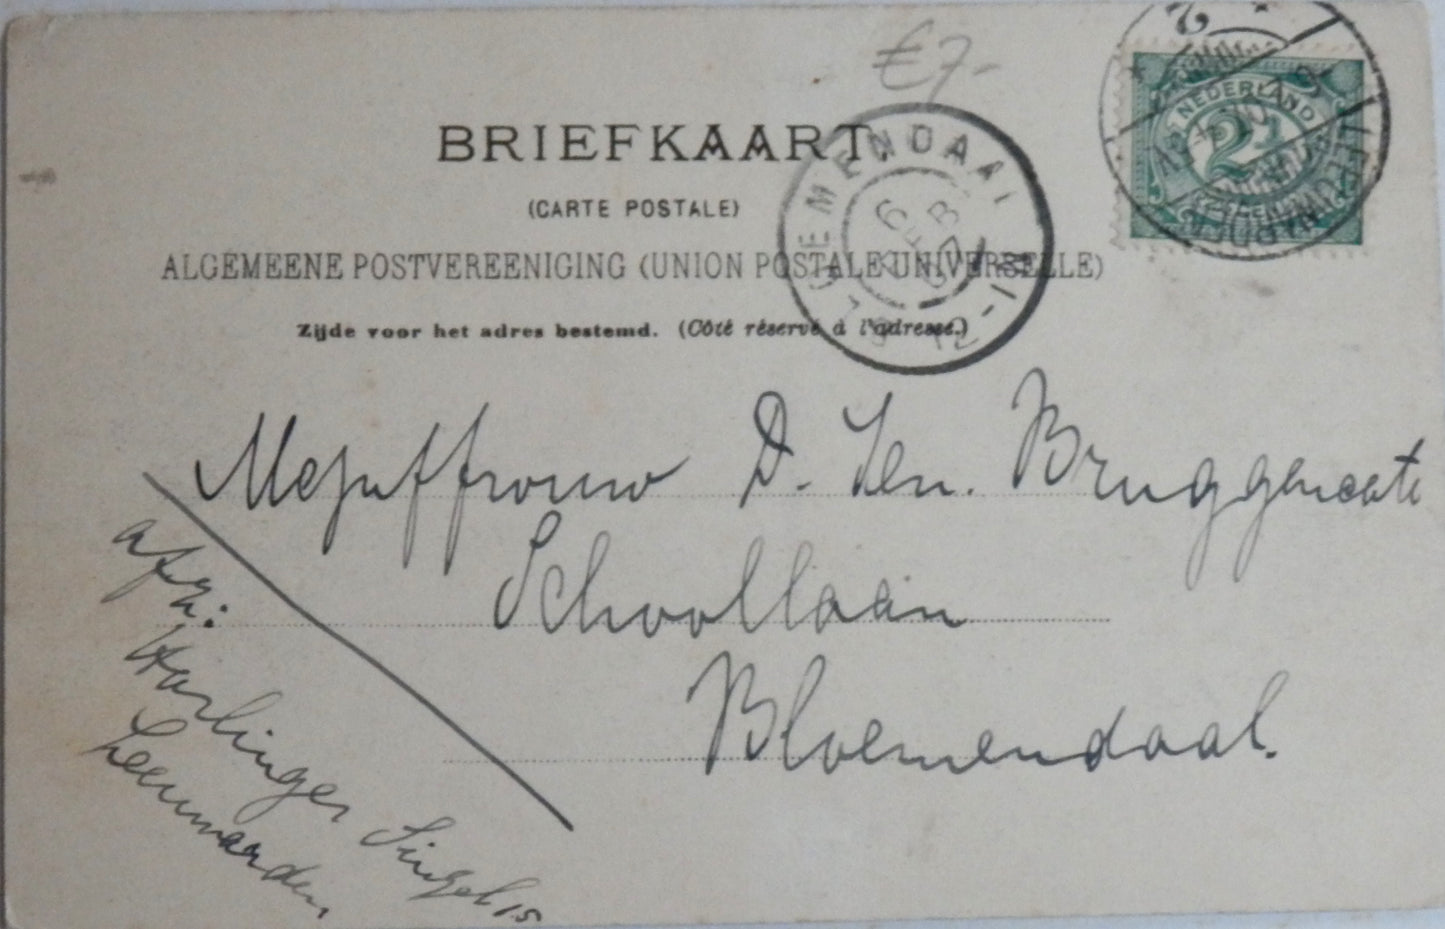 €7-
BRIEFKAART
(CARTE POSTALE)
ALGEMEENE POSTVEREENIGING (UNION POSTALE UNIVERSELLE)
Zijde voor het adres bestemd. (Côté réservé à l'adresse.)
NEDERLAND
2½
LEEUWARDEN
BLOEMENDAAL
6 FEB 07
Mejuffrouw D. Ten. Bruggencate
Schoollaan
Bloemendaal.
afz:
Harlinger Singel 15
Leeuwarden